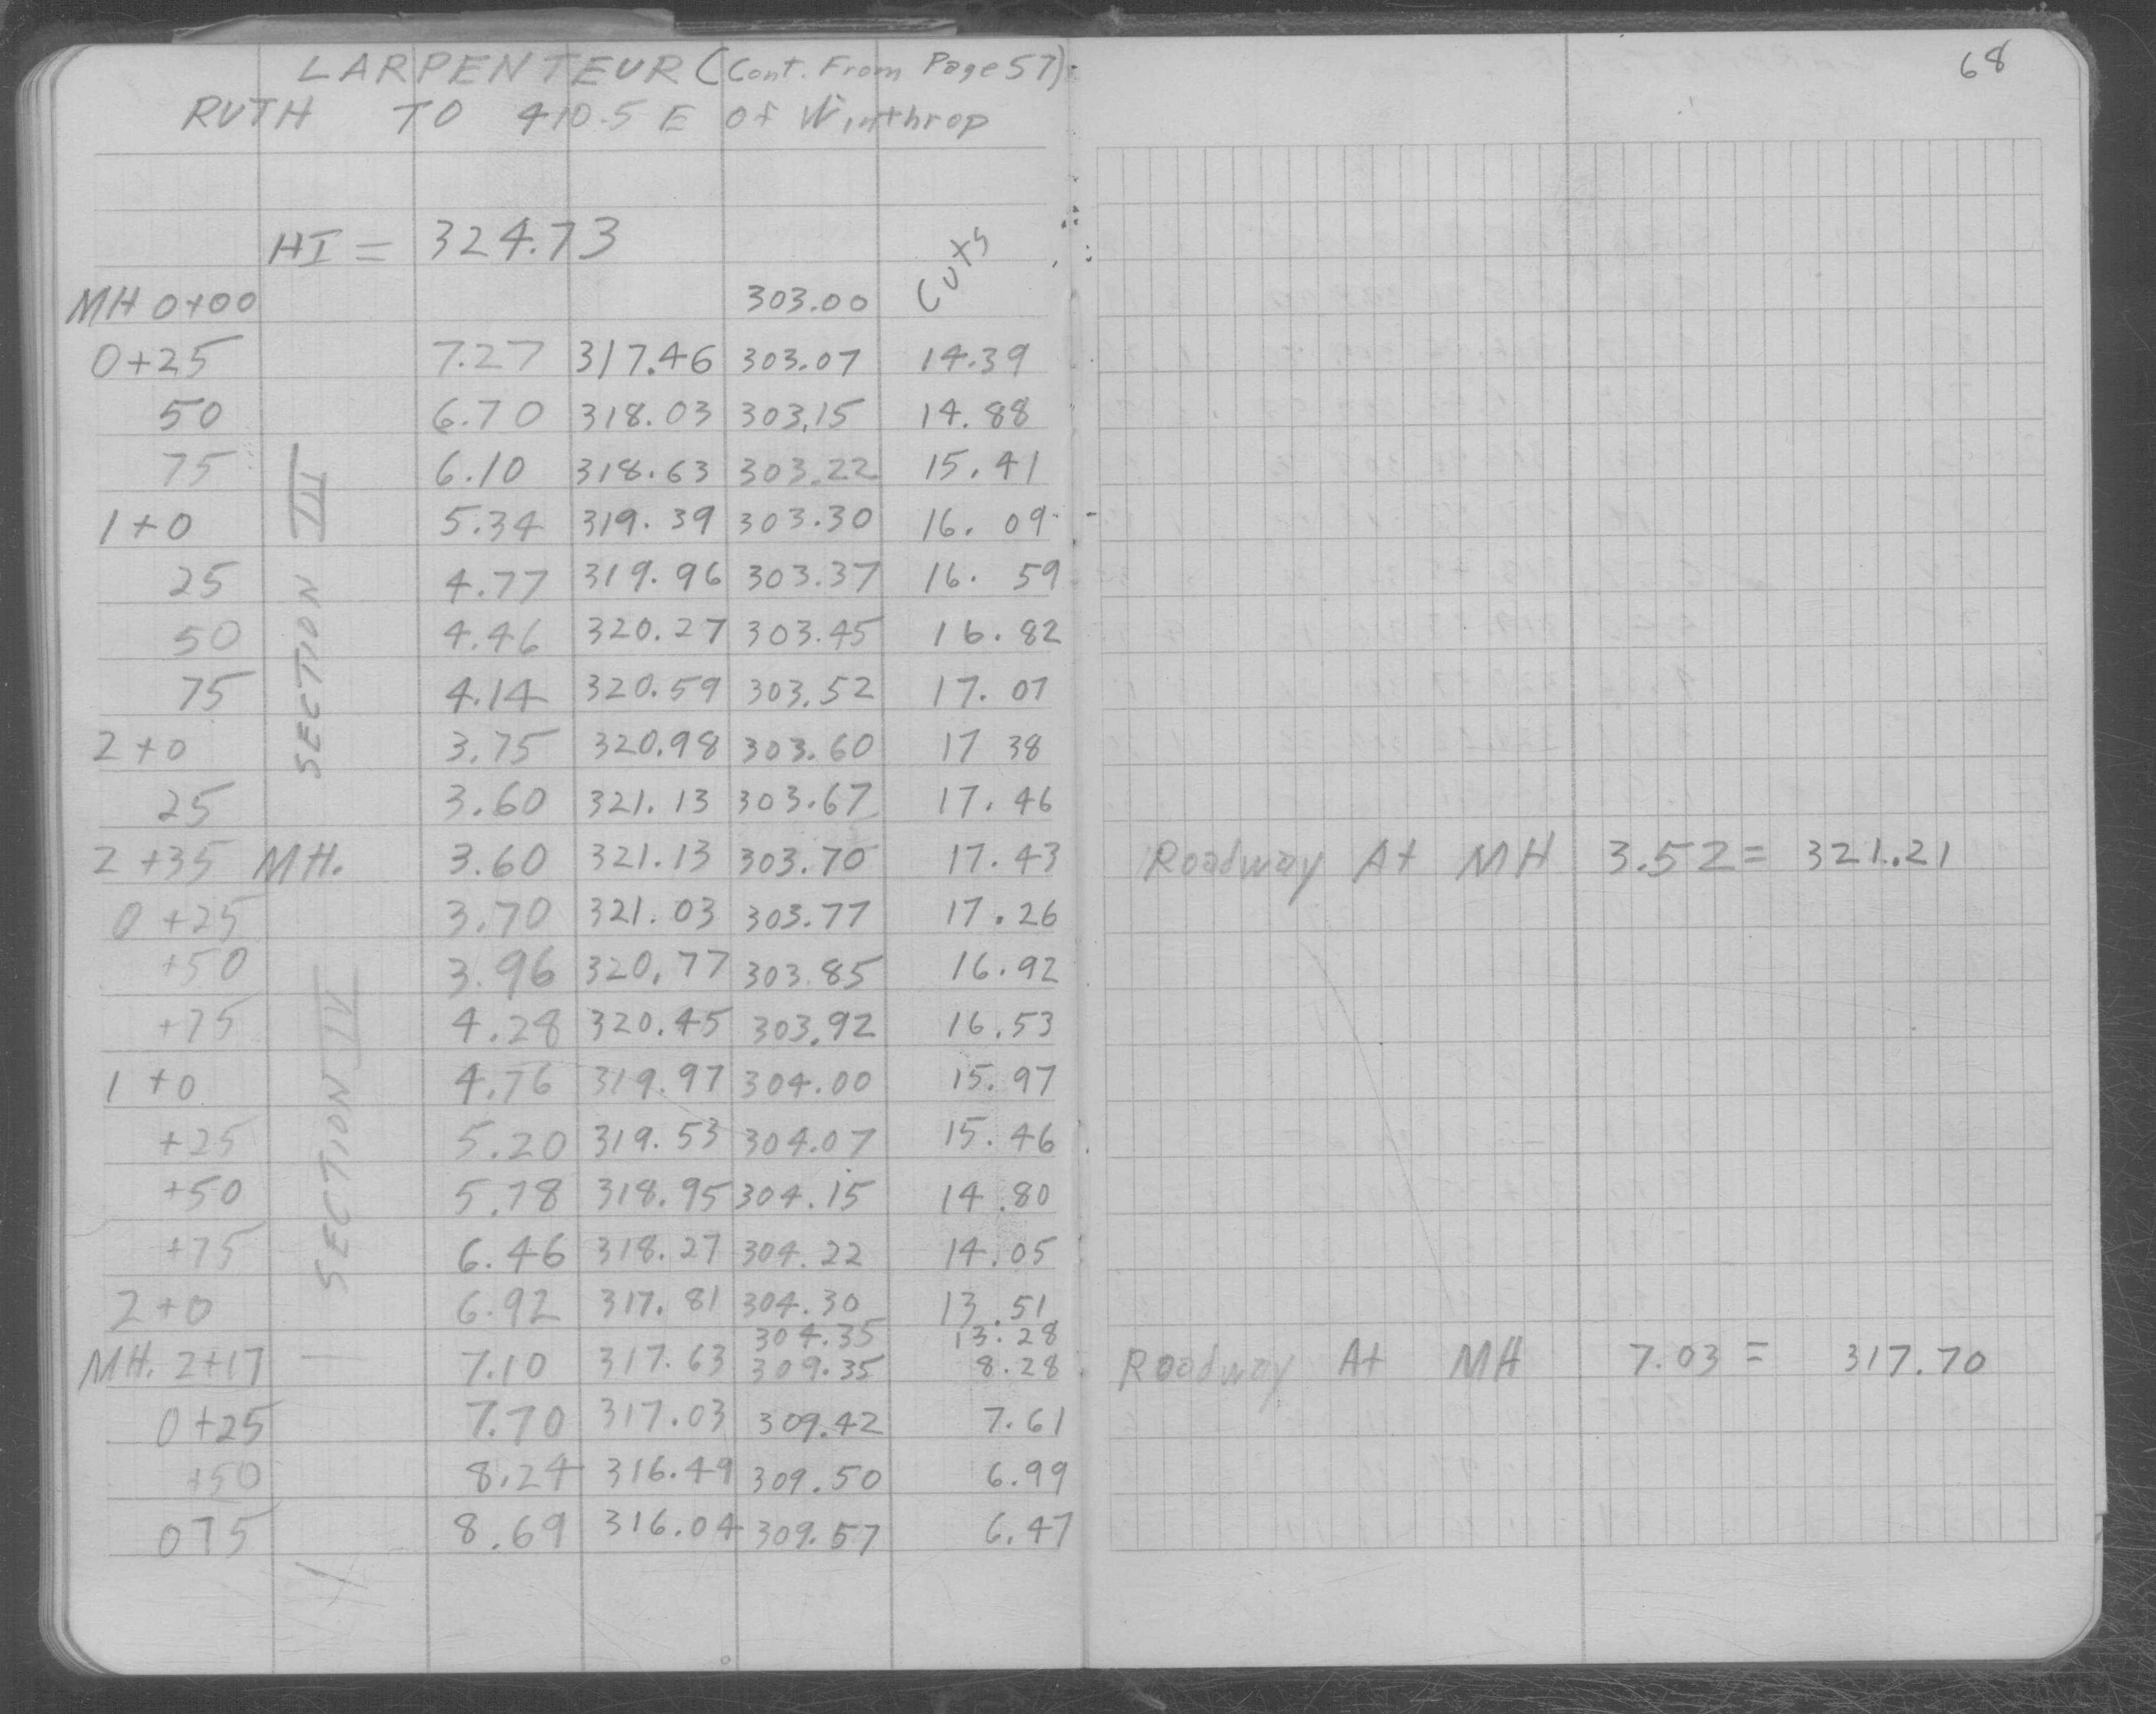 68
LARPENTEUR (Cont. From Page 57)
RUTH TO 410.5 E Of Winthrop
HI = 324.73
Cuts
MH 0+00 303.00
0+25 7.27 317.46 303.07 14.39
50 6.70 318.03 303.15 14.88
75 6.10 318.63 303.22 15.41
1+0 5.34 319.39 303.30 16.09
25 4.77 319.96 303.37 16.59
50 4.46 320.27 303.45 16.82
75 4.14 320.59 303.52 17.07
2+0 3.75 320.98 303.60 17 38
25 3.60 321.13 303.67 17.46
SECTION III
2+35 MH. 3.60 321.13 303.70 17.43 Roadway At MH 3.52 = 321.21
0+25 3.70 321.03 303.77 17.26
+50 3.96 320.77 303.85 16.92
+75 4.28 320.45 303.92 16.53
1+0 4.76 319.97 304.00 15.97
+25 5.20 319.53 304.07 15.46
+50 5.78 318.95 304.15 14.80
+75 6.46 318.27 304.22 14.05
2+0 6.92 317.81 304.30 13.51
SECTION IV
304.35 13.28
MH. 2+17 7.10 317.63 309.35 8.28 Roadway At MH 7.03 = 317.70
0+25 7.70 317.03 309.42 7.61
+50 8.24 316.49 309.50 6.99
075 8.69 316.04 309.57 6.47